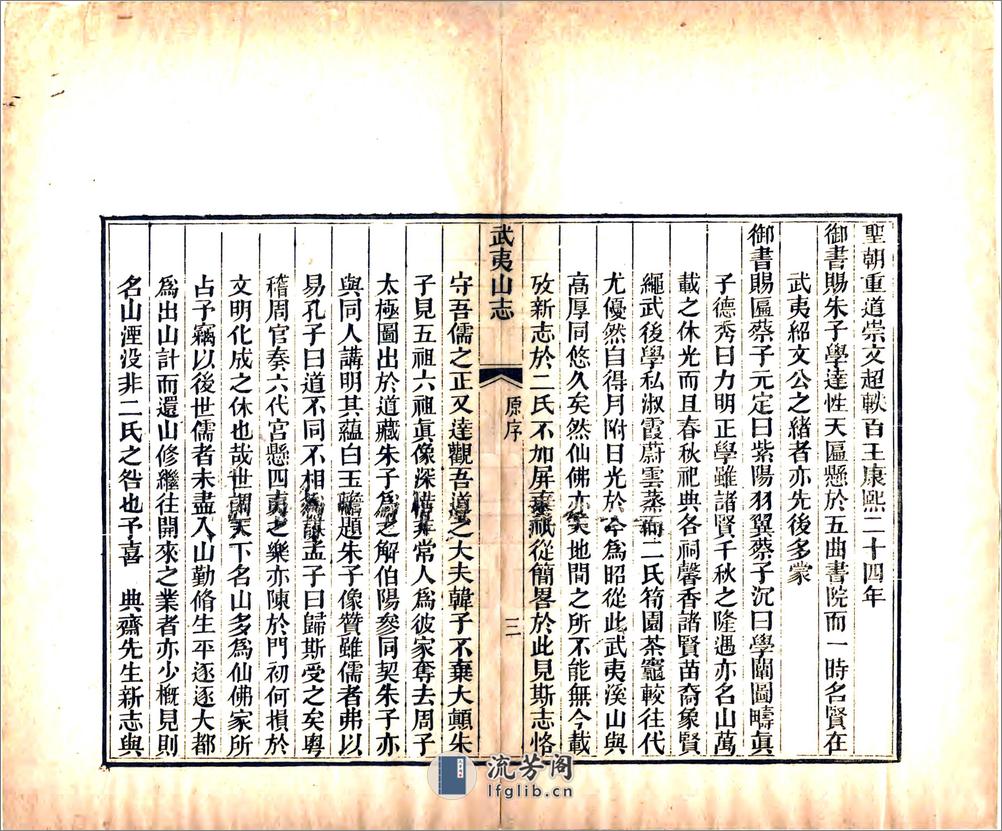 聖朝重道崇文超軼百王康熙二十四年
御書賜朱子學達性天匾懸於五曲書院而一時名賢在
武夷紹文公之緒者亦先後多蒙
御書賜匾蔡子元定曰紫陽羽翼蔡子沉曰學闡圖疇眞
子德秀曰力明正學雖諸賢千秋之隆遇亦名山萬
載之休光而且春秋祀典各祠馨香諸賢苗裔象賢
繩武後學私淑霞蔚雲蒸二氏筍園茶竈較往代
尤優然自得月附日光於今為昭從此武夷溪山與
高厚同悠久矣然仙佛亦天地間之所不能無今載
攷新志於二氏不加屏棄祇從簡畧於此見斯志恪
武夷山志
原序
三
守吾儒之正又達觀吾道之大夫韓子不棄大顛朱
子見五祖六祖眞像深惜非常人為彼家奪去周子
太極圖出於道藏朱子為之解伯陽參同契朱子亦
與同人講明其蘊白玉蟾題朱子像贊雖儒者弗以
易孔子曰道不同不相為謀孟子曰歸斯受之矣粵
稽周官奏六代宮懸四夷之樂亦陳於門初何損於
文明化成之休也哉世謂天下名山多為仙佛家所
占予竊以後世儒者未盡入山勤脩生平逐逐大都
為出山計而還山修繼往開來之業者亦少概見則
名山湮没非二氏之咎也予喜 典齋先生新志與
流芳阁
lfglib.cn